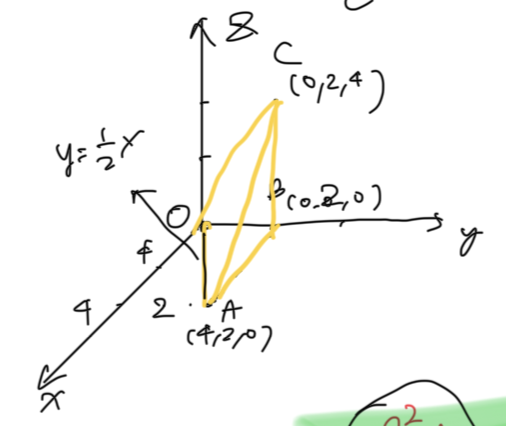 z
C
(0,2,4)
y=½x
B(0,2,0)
O
y
4
4
2
A
(4,2,0)
x
2